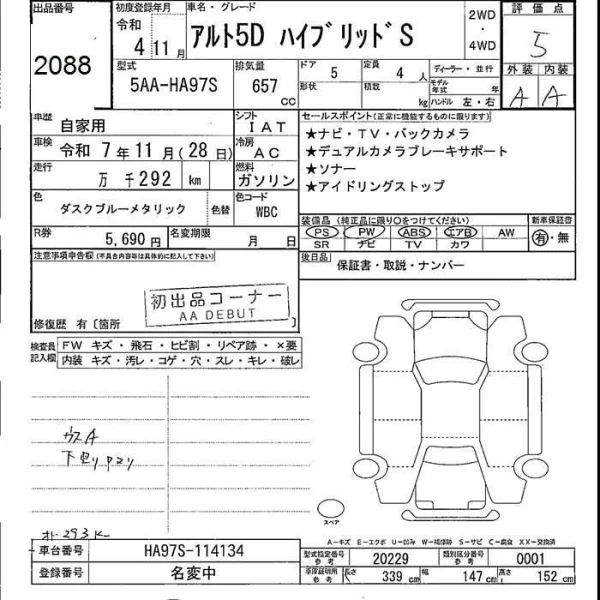 出品番号
2088
初度登録年月
令和
4 11月
車名・グレード
アルト5D ハイブリッドS
2WD
・
4WD
評価点
5
外装 内装
A A
型式
5AA-HA97S
排気量
657
cc
ドア 5
形状
定員 4 人
積載 kg
ディーラー・並行
モデル年式 年
ハンドル 左・右
車歴
自家用
シフト
IAT
車検
令和 7年11月(28日)
冷房
AC
走行
万 千292 km
燃料
ガソリン
色
ダスクブルーメタリック
色替
色コード
WBC
R券
5,690円
名変期限
月 日
セールスポイント(正常に機能するものに限ります)
★ナビ・TV・バックカメラ
★デュアルカメラブレーキサポート
★ソナー
★アイドリングストップ
装備品(純正品に限り○をつけてください)
PS PW ABS エアB AW
SR ナビ TV カワ
新車保証書
有・無
後日品
保証書・取説・ナンバー
注意事項申告欄(不具合内容等は具体的に記入して下さい)
初出品コーナー
AA DEBUT
修復歴 有〔箇所 〕
検査員記入欄
FW キズ・飛石・ヒビ割・リペア跡・×要
内装 キズ・汚レ・コゲ・穴・スレ・キレ・破レ
ウスA
スペア
A-キズ E-エクボ U-凹み W-補修跡 S-サビ C-腐食 XX-交換済
車台番号
HA97S-114134
型式指定番号
参考
20229
類別区分番号
参考
0001
登録番号
名変中
車庫証明用
参考
長さ 339 cm
幅 147 cm
高さ 152 cm